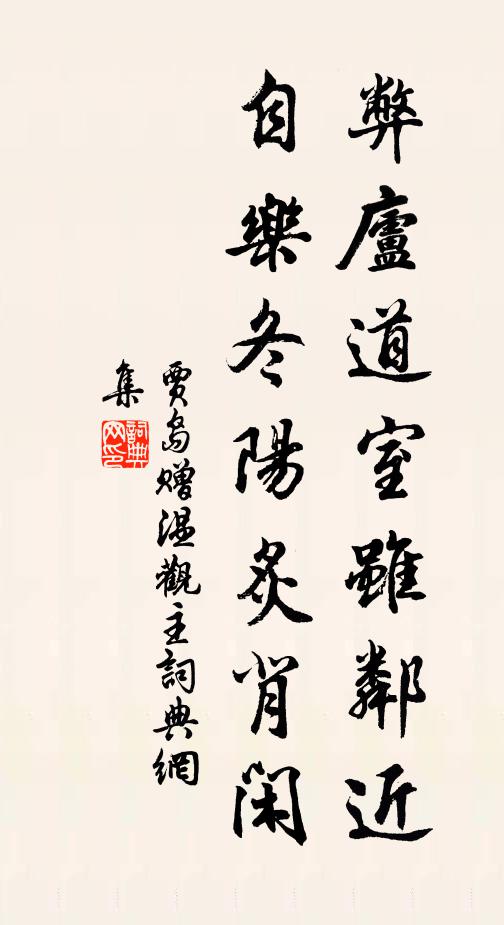 弊廬道室雖鄰近
自樂冬陽炙背閑
賈島贈温觀主詞典網
集
詞典网印